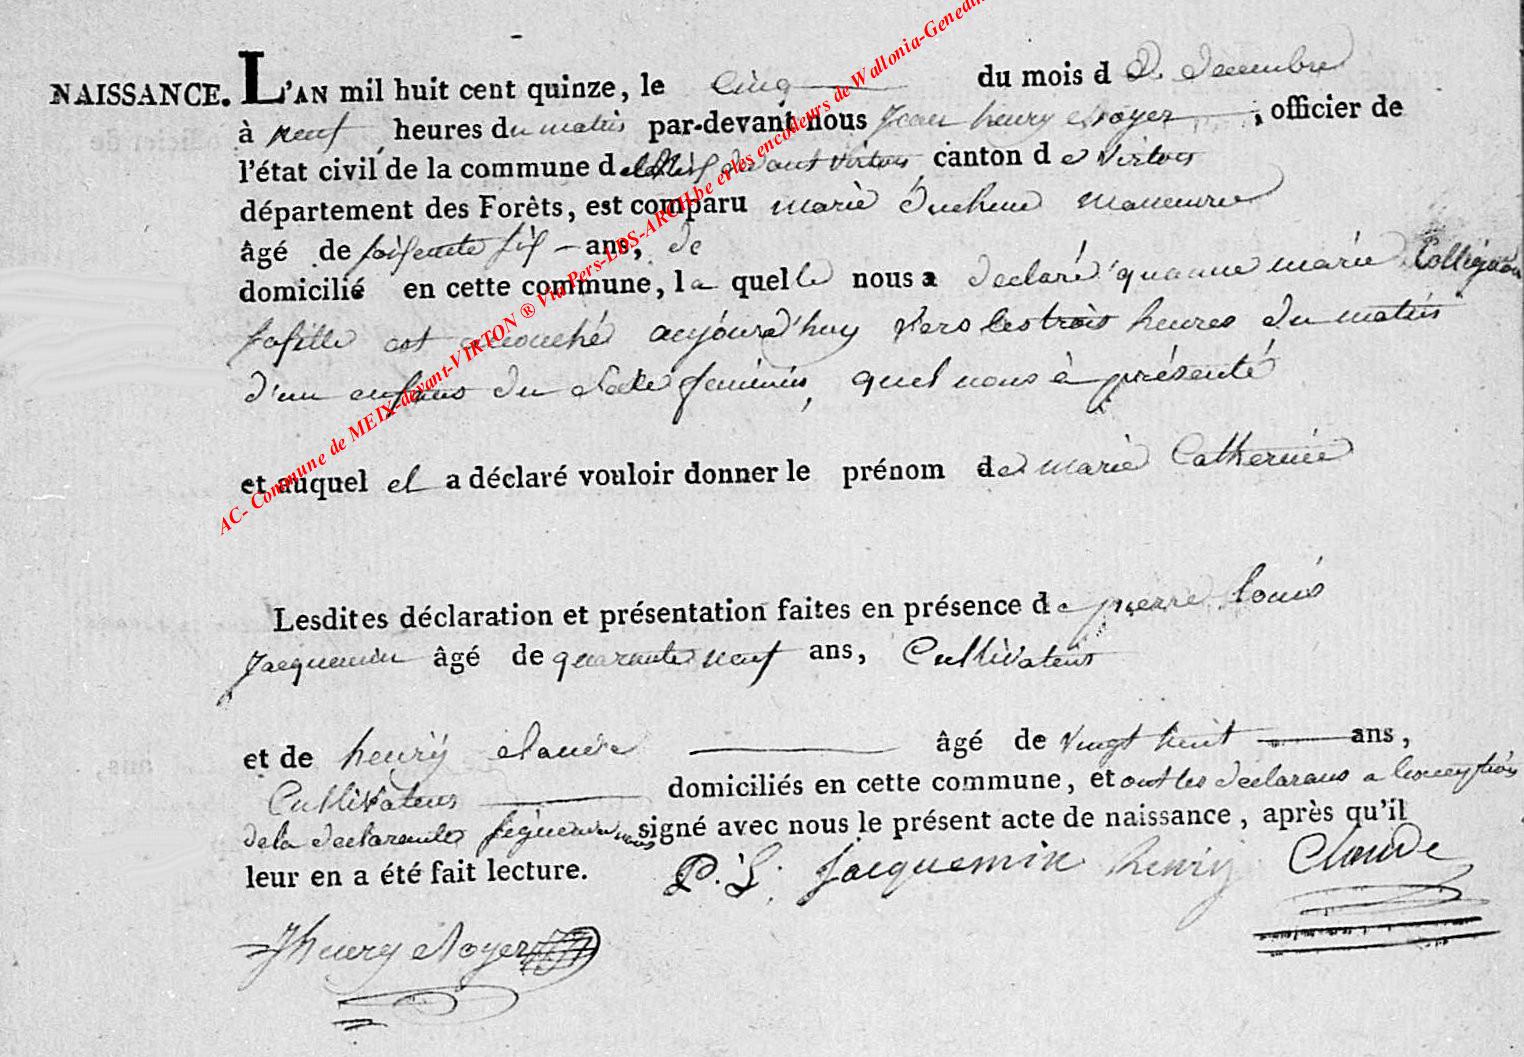 NAISSANCE. L'AN mil huit cent quinze, le Cinq du mois d e. decembre
à neuf heures du matin par-devant nous Jean henry noyer, officier de
l'état civil de la commune de Meix devant virton, canton d e virton
département des Forêts, est comparu marie duchene
âgé de soisente six ans, de
domicilié en cette commune, la quelle nous a declaré qu'anne marie Collignon
safille est accouché aujourd'huy vers les trois heures du matin
d'un enfans du sexe feminin, quel nous à présenté
et auquel el a déclaré vouloir donner le prénom de marie Catherine
Lesdites déclaration et présentation faites en présence d e pierre louis
Jacquemin âgé de quarante neuf ans, Cultivateur
et de henrÿ claude âgé de vingt huit ans,
Cultivateur domiciliés en cette commune, et ont les declarans a lexception
dela declarante signé avec nous le présent acte de naissance, après qu'il
leur en a été fait lecture. P. L. Jacquemin henrÿ Claude
Jhenry noyer
AC- Commune de MEIX-devant-VIRTON ® Via Pers-LDS-ARCH.be et les encodeurs de Wallonia-Genedin